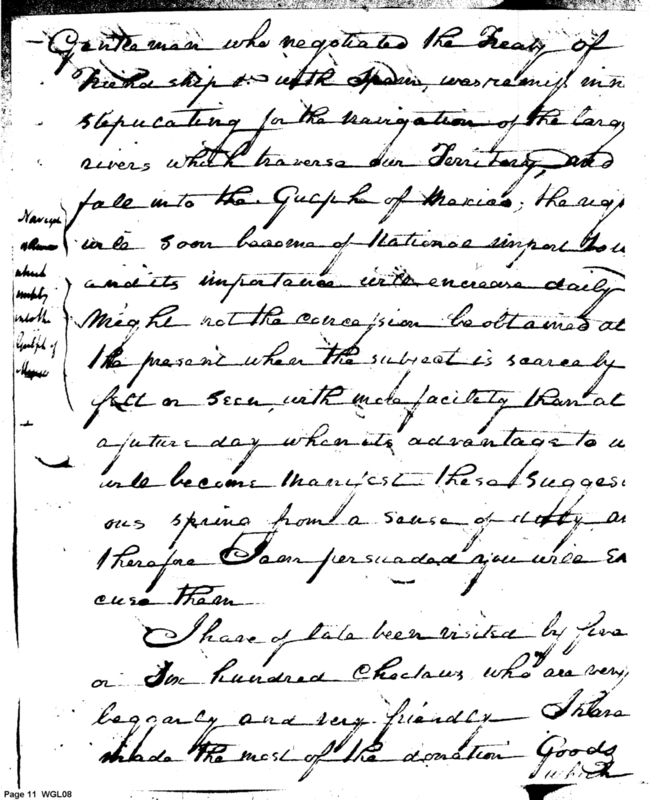 Gentleman who negotiated the Treaty of
Friendship & with Spain, was remiss in n
stepucating for the navigation of the larg
rivers which traverse our Territory, and
fall into the Gulphe of Mexico; the
will soon become of National import to u
and its importance will encrease daily
Might not the concession be obtained at
the present when the subject is scarcely
felt or seen, with more facility than at
a future day when its advantage to u
will become manifest These suggesi
ons spring from a sense of duty an
therefore I am persuaded you will Ex
cuse them
I have of late been visited by five
or Six hundred Choctaws who are very
beggarly and very friendly I have
made the most of the donation Goods
which
which
empty
into the
Gulph of
Mexico
Page 11 WGL08